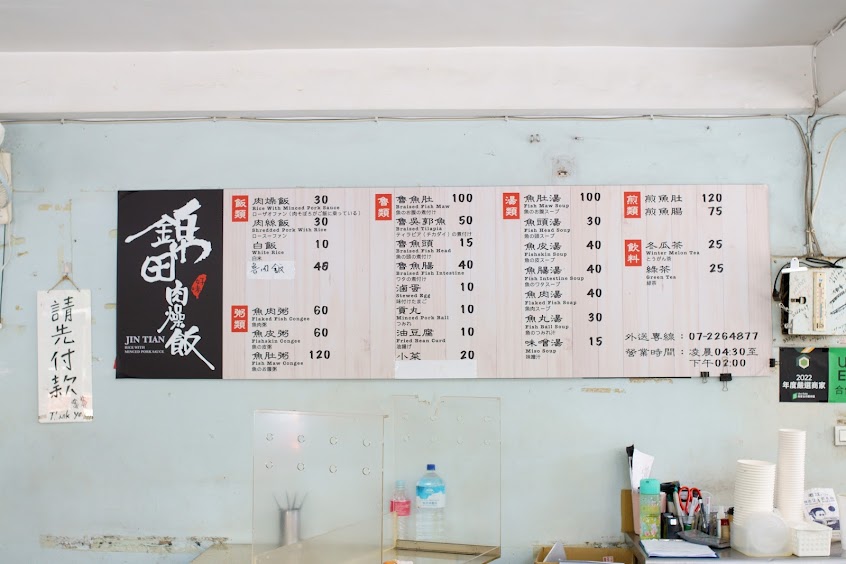 錦田肉燥飯
JIN TIAN
RICE WITH
MINCED PORK SAUCE
飯類
肉燥飯 30
Rice With Minced Pork Sauce
ローザオファン(肉そぼろがご飯に乗っている)
肉絲飯 30
Shredded Pork With Rice
ロースーファン
白飯 10
White Rice
白米
魯肉飯
粥類
魚肉粥 60
Flaked Fish Congee
魚肉粥
魚皮粥 60
Fishskin Congee
魚の皮粥
魚肚粥 120
Fish Maw Congee
魚のお腹粥
魯類
魯魚肚 100
Braised Fish Maw
魚のお腹の煮付け
魯吳郭魚 50
Braised Tilapia
ティラピア(チカダイ)の煮付け
魯魚頭 15
Braised Fish Head
魚の頭の煮付け
魯魚腸 40
Braised Fish Intestine
ワタの煮付け
滷蛋 10
Stewed Egg
味付けたまご
貢丸 10
Minced Pork Ball
つみれ
油豆腐 10
Fried Bean Curd
油揚げ
小菜 20
湯類
魚肚湯 100
Fish Maw Soup
魚のお腹スープ
魚頭湯 30
Fish Head Soup
魚の頭スープ
魚皮湯 40
Fishskin Soup
魚の皮スープ
魚腸湯 40
Fish Intestine Soup
魚のワタスープ
魚肉湯 40
Flaked Fish Soup
魚肉スープ
魚丸湯 30
Fish Ball Soup
魚のつみれ汁
味噌湯 15
Miso Soup
味噌汁
煎類
煎魚肚 120
煎魚腸 75
飲料
冬瓜茶 25
Winter Melon Tea
とうがん茶
綠茶 25
Green Tea
緑茶
外送專線:07-2264877
營業時間:凌晨04:30至
下午02:00
請先付款
Thank you
2022
年度嚴選商家
U
E